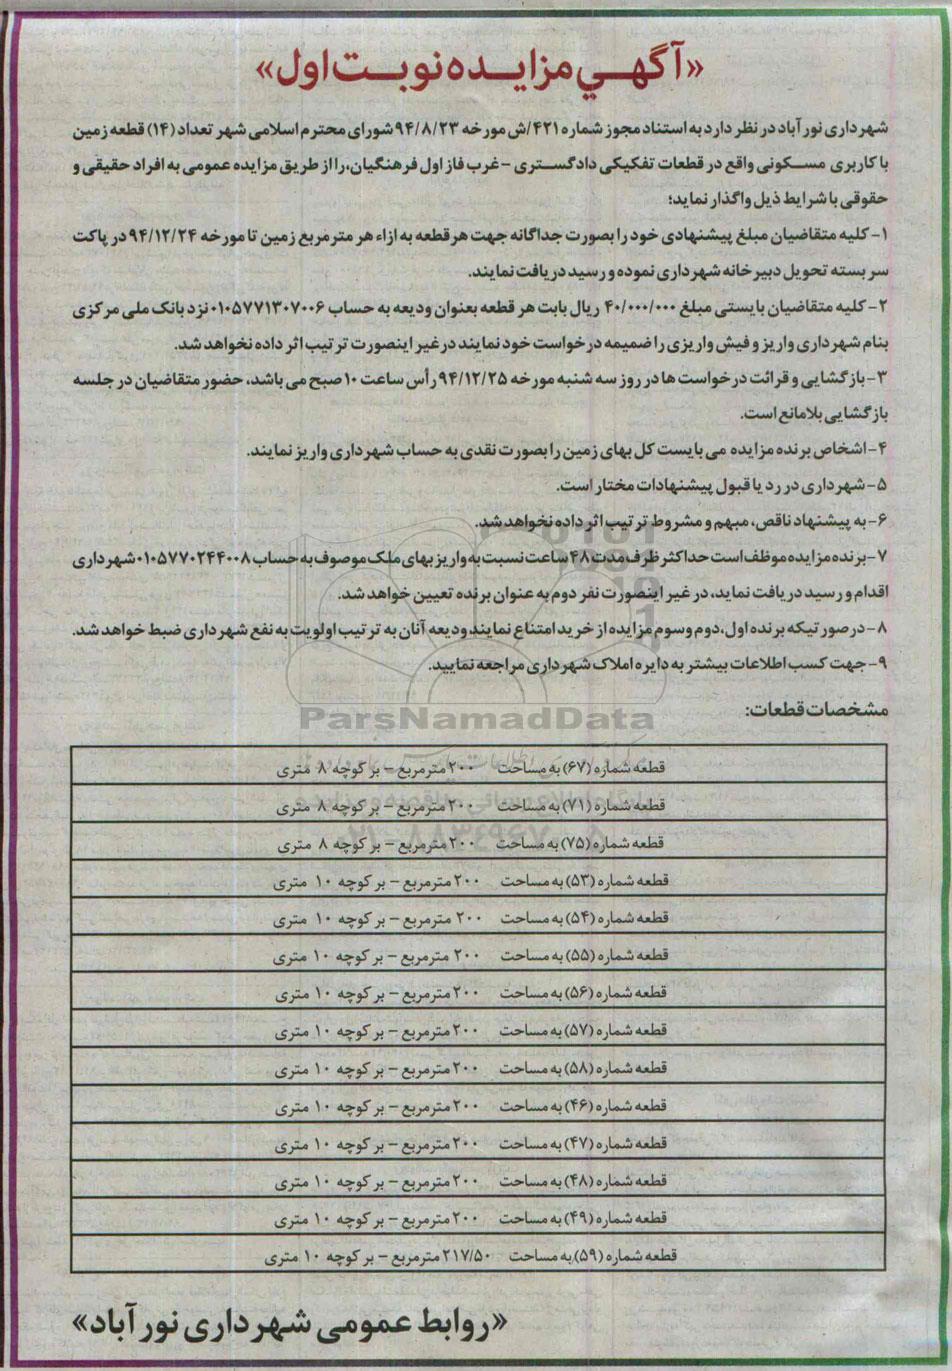 «آگهي مزايده نوبت اول»
شهرداری نورآباد در نظر دارد به استناد مجوز شماره ۴۲۱/ش مورخه ۹۴/۸/۲۳ شورای محترم اسلامی شهر تعداد (۱۴) قطعه زمین
با کاربری مسکونی واقع در قطعات تفکیکی دادگستری – غرب فاز اول فرهنگیان، را از طریق مزایده عمومی به افراد حقیقی و
حقوقی با شرایط ذیل واگذار نماید؛
۱- کلیه متقاضیان مبلغ پیشنهادی خود را بصورت جداگانه جهت هر قطعه به ازاء هر مترمربع زمین تا مورخه ۹۴/۱۲/۲۴ در پاکت
سر بسته تحویل دبیرخانه شهرداری نموده و رسید دریافت نمایند.
۲- کلیه متقاضیان بایستی مبلغ ۴۰/۰۰۰/۰۰۰ ریال بابت هر قطعه بعنوان ودیعه به حساب ۰۱۰۵۷۷۱۳۰۷۰۰۶ نزد بانک ملی مرکزی
بنام شهرداری واریز و فیش واریزی را ضمیمه درخواست خود نمایند در غیر اینصورت ترتیب اثر داده نخواهد شد.
۳- بازگشایی و قرائت درخواست ها در روز سه شنبه مورخه ۹۴/۱۲/۲۵ رأس ساعت ۱۰ صبح می باشد، حضور متقاضیان در جلسه
بازگشایی بلامانع است.
۴- اشخاص برنده مزایده می بایست کل بهای زمین را بصورت نقدی به حساب شهرداری واریز نمایند.
۵- شهرداری در رد یا قبول پیشنهادات مختار است.
۶- به پیشنهاد ناقص، مبهم و مشروط ترتیب اثر داده نخواهد شد.
۷- برنده مزایده موظف است حداکثر ظرف مدت ۴۸ ساعت نسبت به واریز بهای ملک موصوف به حساب ۰۱۰۵۷۷۰۲۴۴۰۰۸ شهرداری
اقدام و رسید دریافت نماید، در غیر اینصورت نفر دوم به عنوان برنده تعیین خواهد شد.
۸- در صورتیکه برنده اول، دوم و سوم مزایده از خرید امتناع نمایند ودیعه آنان به ترتیب اولویت به نفع شهرداری ضبط خواهد شد.
۹- جهت کسب اطلاعات بیشتر به دایره املاک شهرداری مراجعه نمایید.
ParsNamadData
مشخصات قطعات:
قطعه شماره (۶۷) به مساحت ۲۰۰ مترمربع – بر کوچه ۸ متری
قطعه شماره (۷۱) به مساحت ۲۰۰ مترمربع – بر کوچه ۸ متری
قطعه شماره (۷۵) به مساحت ۲۰۰ مترمربع – بر کوچه ۸ متری
قطعه شماره (۵۳) به مساحت ۲۰۰ مترمربع – بر کوچه ۱۰ متری
قطعه شماره (۵۴) به مساحت ۲۰۰ مترمربع – بر کوچه ۱۰ متری
قطعه شماره (۵۵) به مساحت ۲۰۰ مترمربع – بر کوچه ۱۰ متری
قطعه شماره (۵۶) به مساحت ۲۰۰ مترمربع – بر کوچه ۱۰ متری
قطعه شماره (۵۷) به مساحت ۲۰۰ مترمربع – بر کوچه ۱۰ متری
قطعه شماره (۵۸) به مساحت ۲۰۰ مترمربع – بر کوچه ۱۰ متری
قطعه شماره (۴۶) به مساحت ۲۰۰ مترمربع – بر کوچه ۱۰ متری
قطعه شماره (۴۷) به مساحت ۲۰۰ مترمربع – بر کوچه ۱۰ متری
قطعه شماره (۴۸) به مساحت ۲۰۰ مترمربع – بر کوچه ۱۰ متری
قطعه شماره (۴۹) به مساحت ۲۰۰ مترمربع – بر کوچه ۱۰ متری
قطعه شماره (۵۹) به مساحت ۲۱۷/۵۰ مترمربع – بر کوچه ۱۰ متری
«روابط عمومی شهرداری نورآباد»